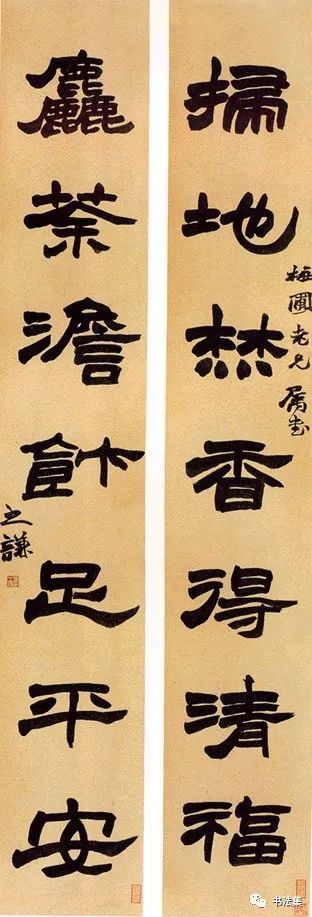 掃地焚香得清福
梅圃老兄屬書
麤茶澹飰足平安
之謙
书法集